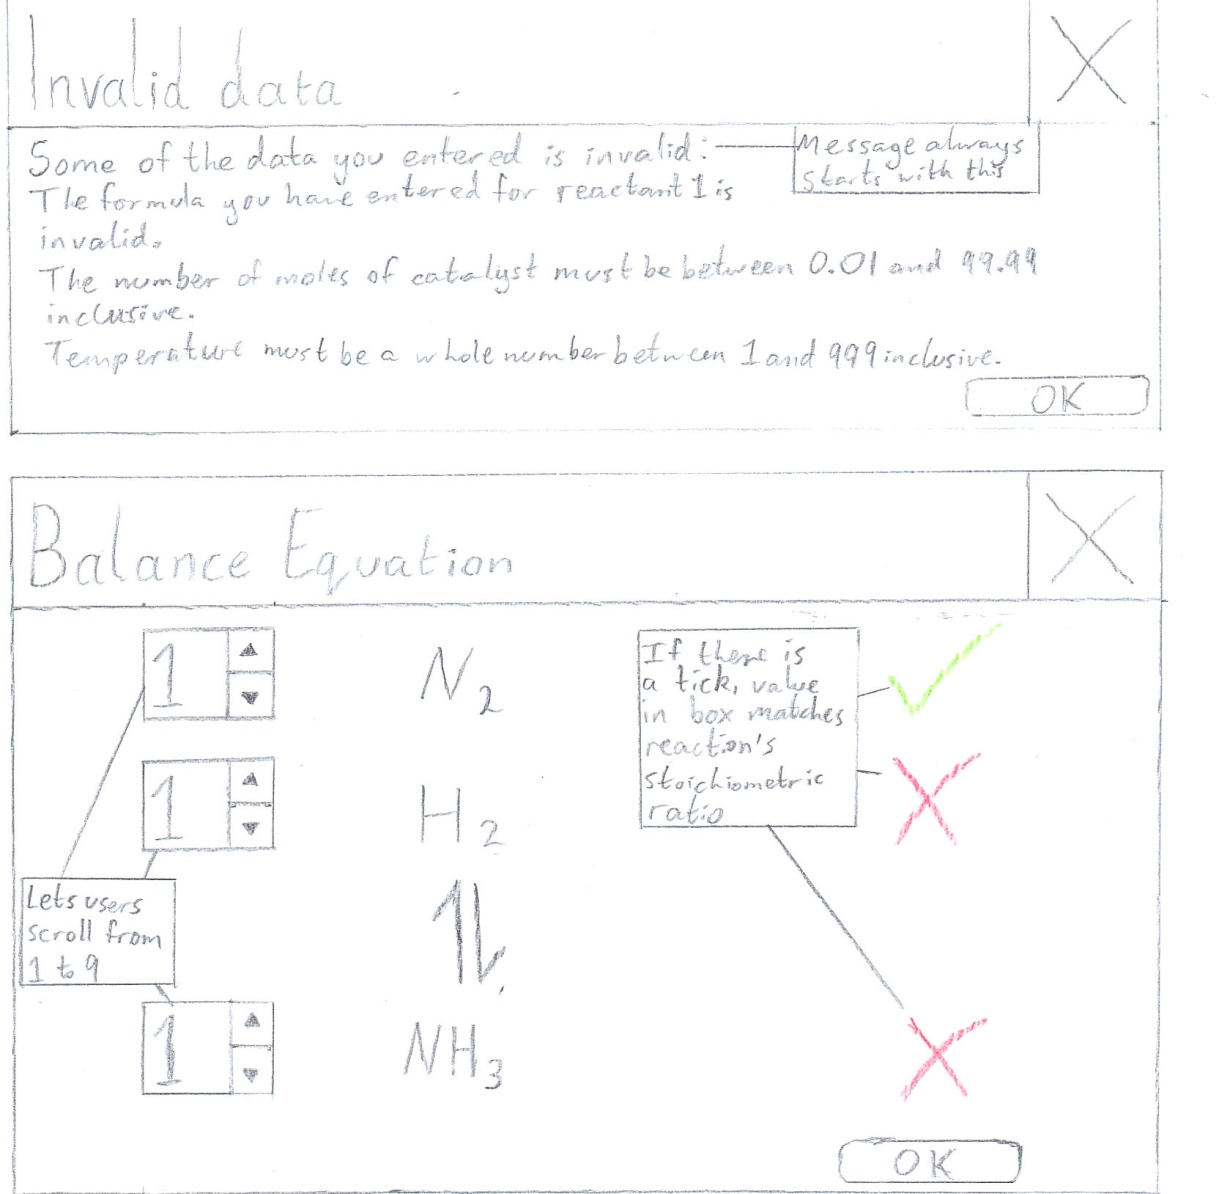 Invalid data
Some of the data you entered is invalid:
Message always
starts with this
The formula you have entered for reactant 1 is
invalid.
The number of moles of catalyst must be between 0.01 and 99.99
inclusive.
Temperature must be a whole number between 1 and 999 inclusive.
OK
Balance Equation
1
N₂
If there is
a tick, value
in box matches
reaction's
stoichiometric
ratio
1
H₂
Lets users
scroll from
1 to 9
⇅
1
NH₃
OK